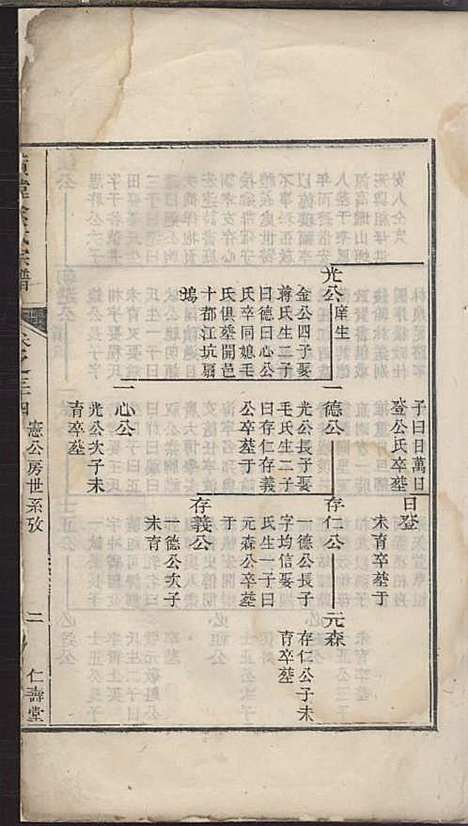 子曰日萬日
登公氏卒塟
日登
未育卒塟于
光公庠生
金公四子娶
蔣氏生三子
曰德曰心公
氏卒同媳毛
氏俱塟開邑
十都江坑扇
塢
一德公
光公長子娶
毛氏生二子
曰存仁存義
公卒塟
存仁公
一德公長子
字均信娶
氏生一子曰
元森公卒塟
于
元森
存仁公子未
育卒塟
存義公
一德公次子
未育
一心公
光公次子未
育卒塟
宗譜
卷之三四
憲公房世系攷
二
仁壽堂